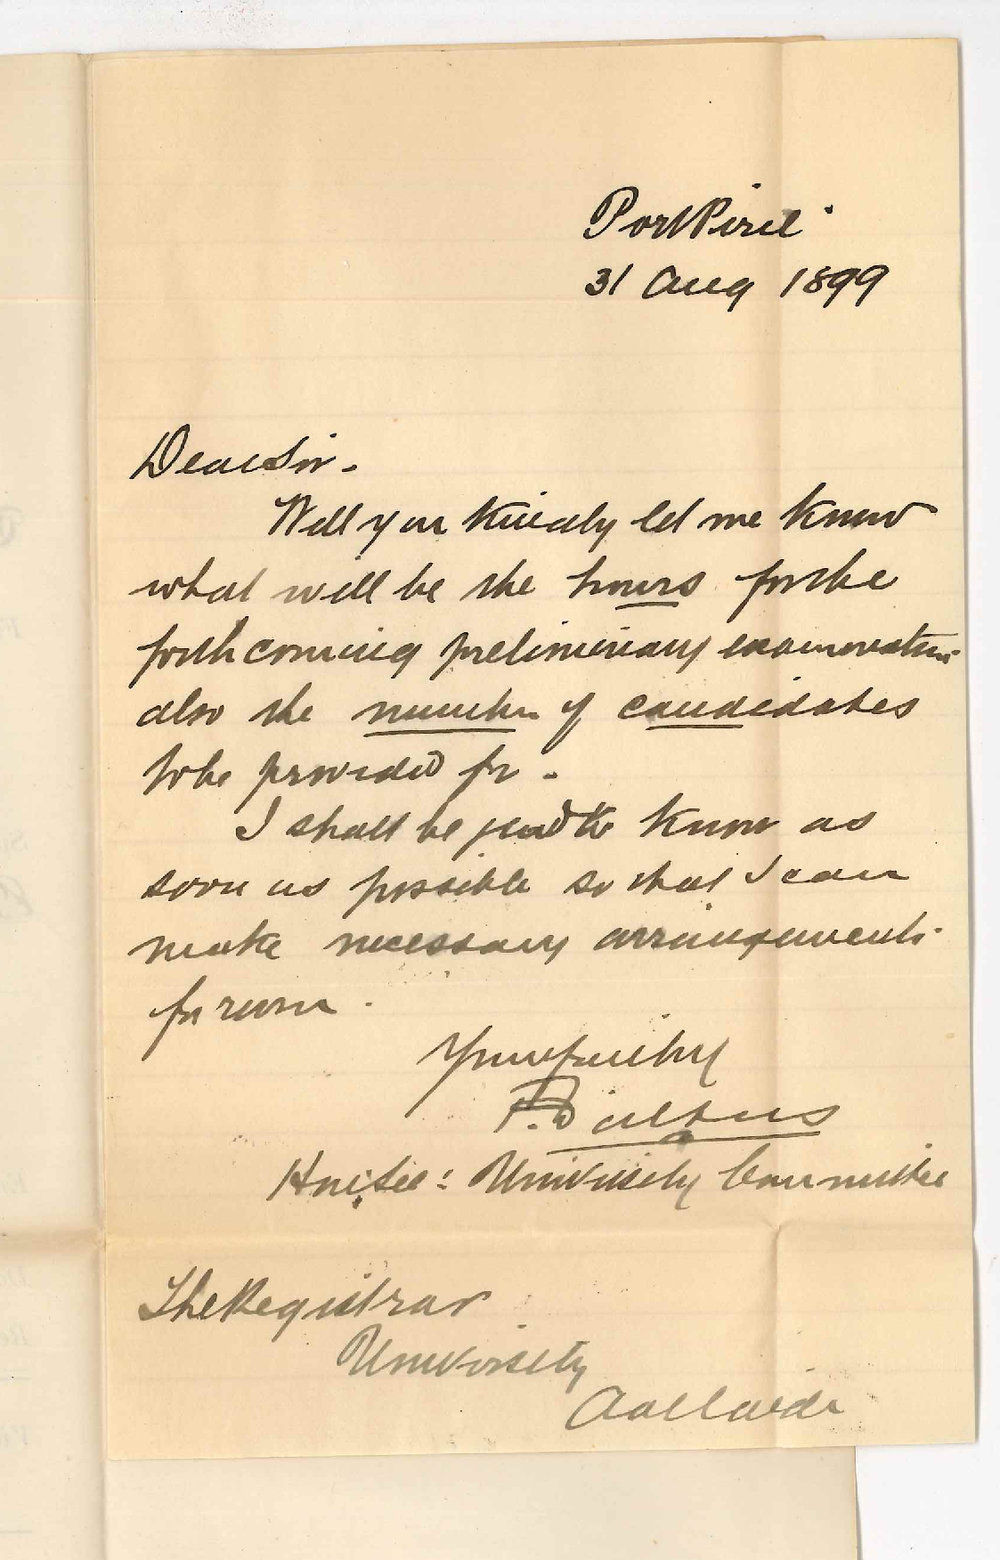 Port Pirie
31 Aug 1899
Dear Sir.
Will you kindly let me know
what will be the hours for the
forthcoming preliminary examination
also the number of candidates
to be provided for.
I shall be glad to know as
soon as possible so that I can
make necessary arrangements
for room.
Yours faithfully
Hon: Sec: University Committee
The Registrar
University
Adelaide